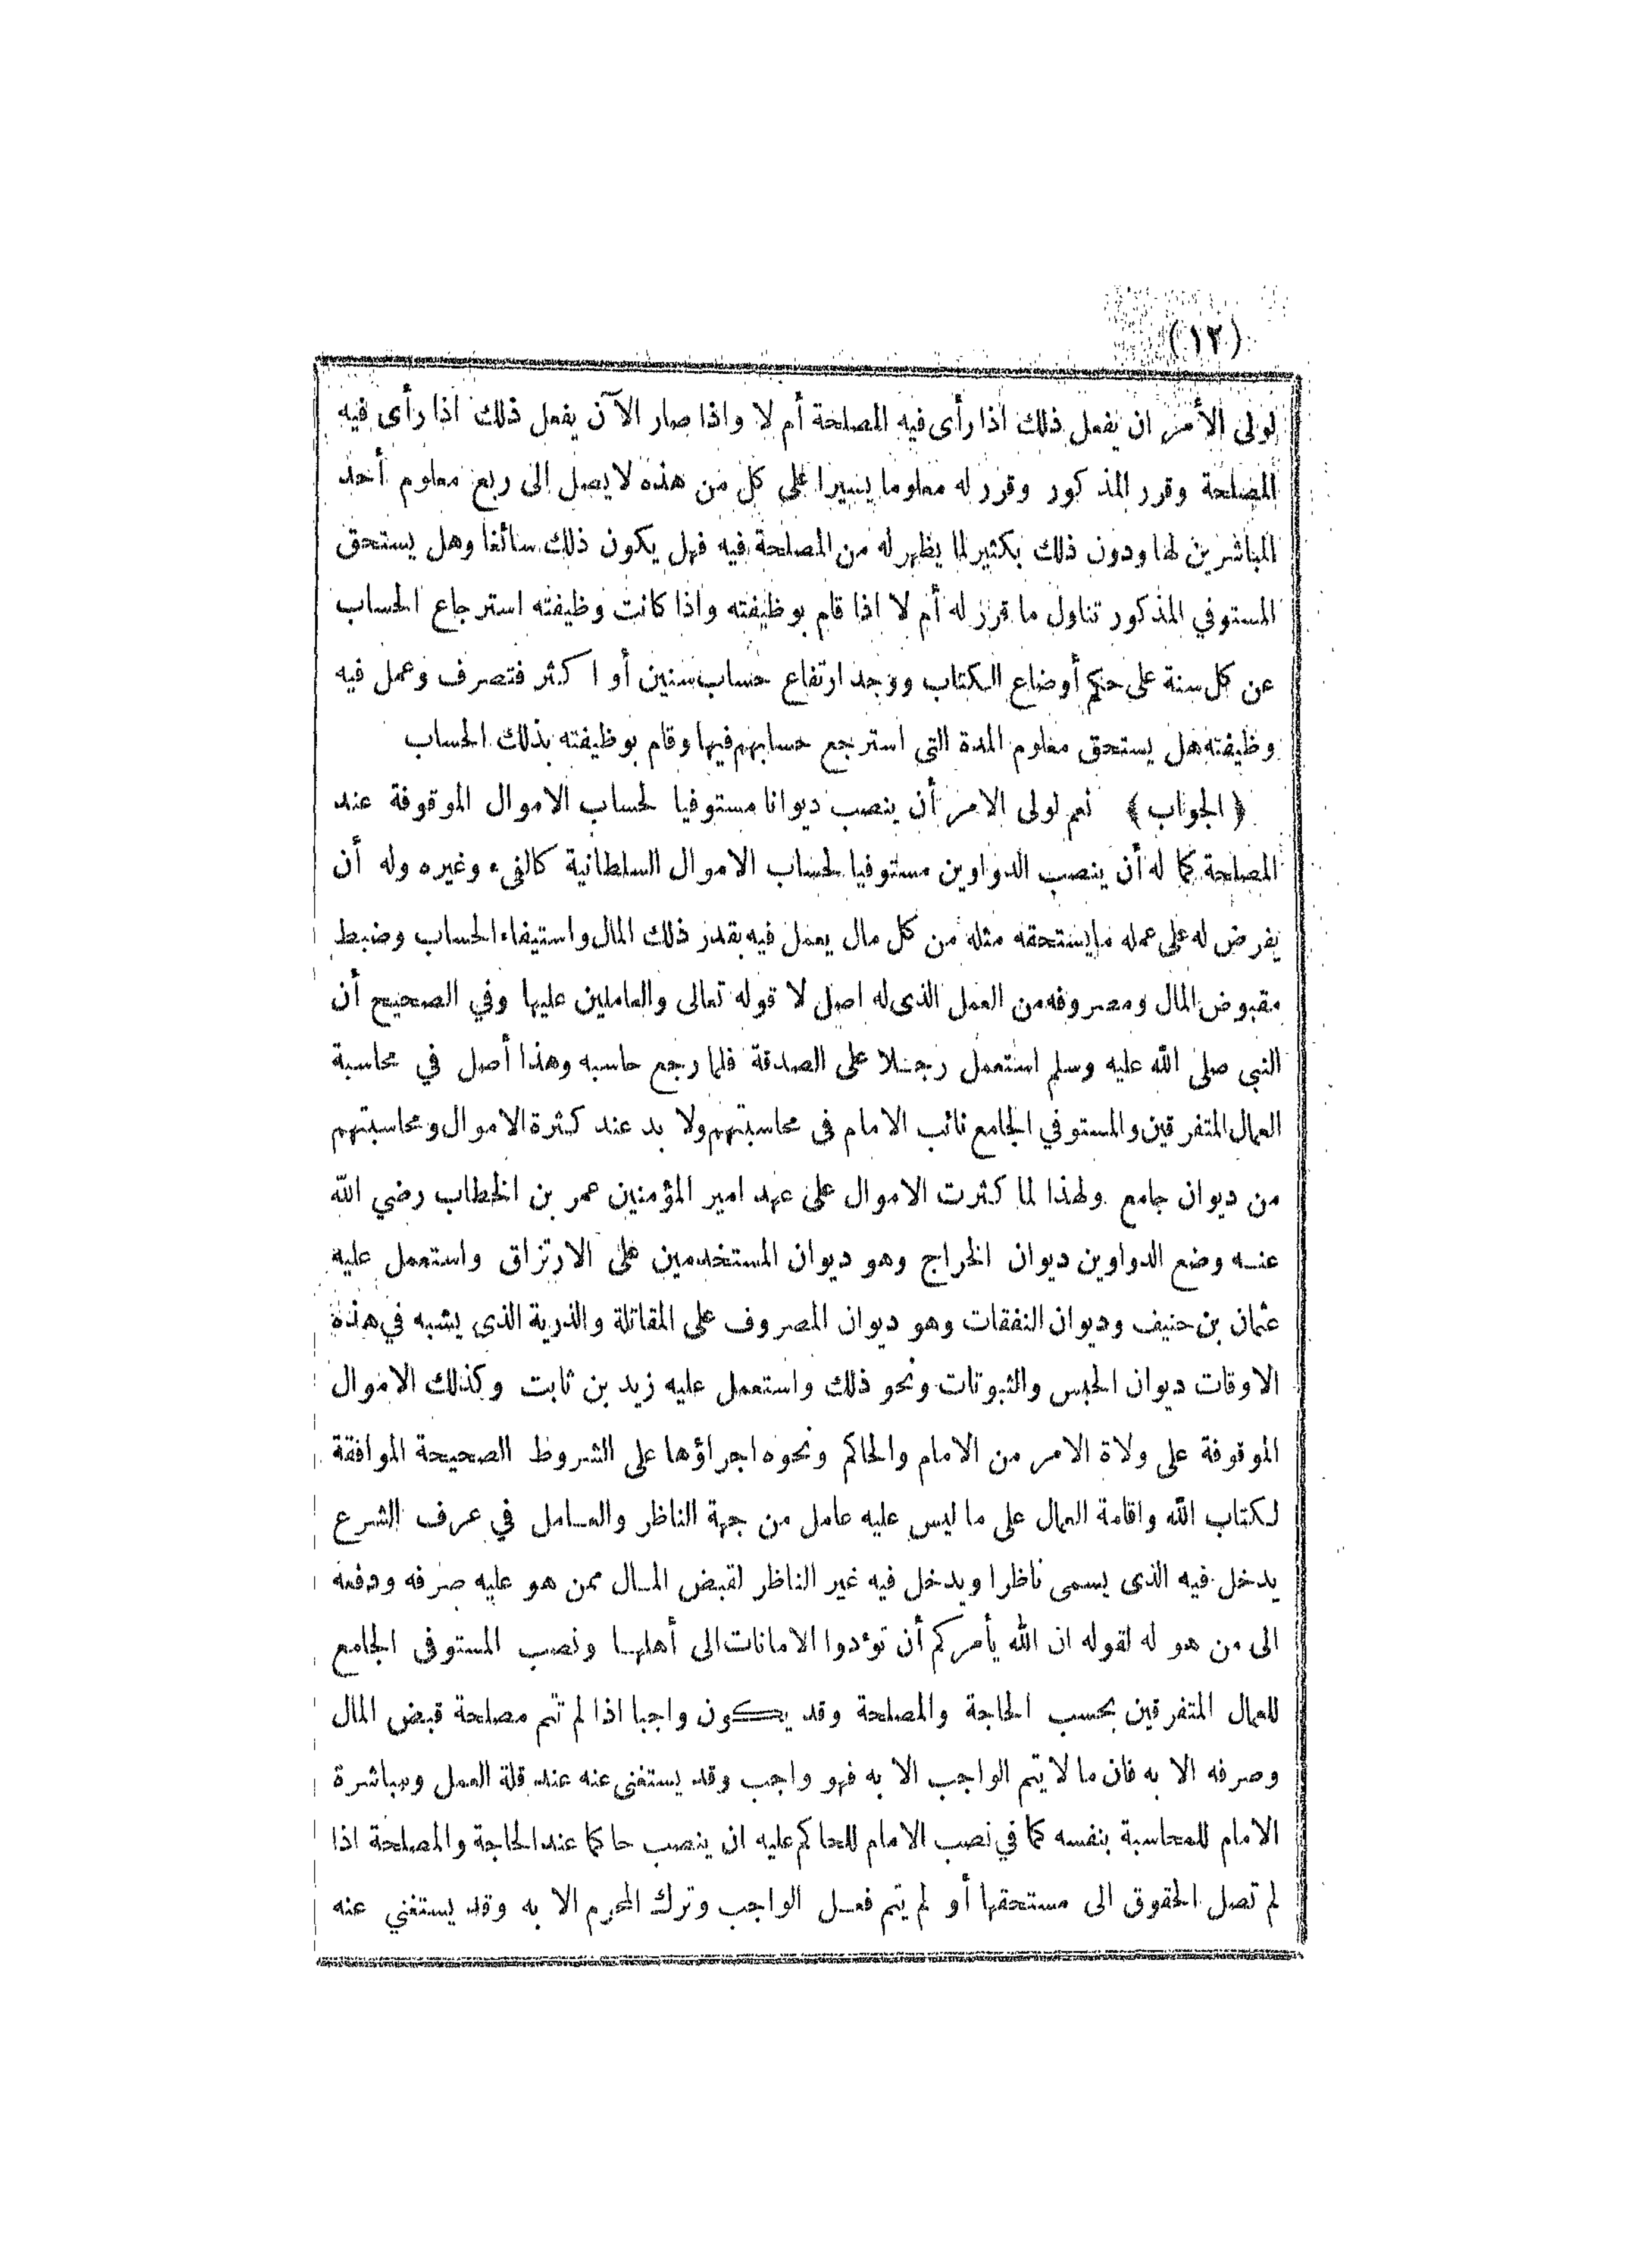 (١٢)
لولى الأمر ان يفعل ذلك اذا رأى فيه المصلحة أم لا واذا صار الآن يفعل ذلك اذا رأى فيه
المصلحة وقرر المذكور وقرر له معلوما يسيرا على كل من هذه لا يصل الى ربع معلوم أحد
المباشرين لها ودون ذلك بكثير لما يظهر له من المصلحة فيه فهل يكون ذلك سائغا وهل يستحق
المستوفي المذكور تناول ما قرر له أم لا اذا قام بوظيفته واذا كانت وظيفته استرجاع الحساب
عن كل سنة على حكم أوضاع الكتاب ووجد ارتفاع حساب سنين أو اكثر فتصرف وعمل فيه
وظيفته هل يستحق معلوم المدة التى استرجع حسابهم فيها وقام بوظيفته بذلك الحساب
﴿ الجواب ﴾ نعم لولى الامر أن ينصب ديوانا مستوفيا لحساب الاموال الموقوفة عند
المصلحة كما له أن ينصب الدواوين مستوفيا لحساب الاموال السلطانية كالفيء وغيره وله أن
يفرض له على عمله ما يستحقه مثله من كل مال يعمل فيه بقدر ذلك المال واستيفاء الحساب وضبط
مقبوض المال ومصروفه من العمل الذى له اصل لا قوله تعالى والعاملين عليها وفي الصحيح أن
النبي صلى الله عليه وسلم استعمل رجلا على الصدقة فلما رجع حاسبه وهذا أصل في محاسبة
العمال المتفرقين والمستوفي الجامع نائب الامام فى محاسبتهم ولا بد عند كثرة الاموال ومحاسبتهم
من ديوان جامع ولهذا لما كثرت الاموال على عهد امير المؤمنين عمر بن الخطاب رضي الله
عنه وضع الدواوين ديوان الخراج وهو ديوان المستخدمين على الارتزاق واستعمل عليه
عثمان بن حنيف وديوان النفقات وهو ديوان المصروف على المقاتلة والذرية الذى يشبه في هذه
الاوقات ديوان الحبس والثبوتات ونحو ذلك واستعمل عليه زيد بن ثابت وكذلك الاموال
الموقوفة على ولاة الامر من الامام والحاكم ونحوه اجراؤها على الشروط الصحيحة الموافقة
لكتاب الله واقامة العمال على ما ليس عليه عامل من جهة الناظر والعامل في عرف الشرع
يدخل فيه الذى يسمى ناظرا ويدخل فيه غير الناظر لقبض المال ممن هو عليه صرفه ودفعه
الى من هو له لقوله ان الله يأمركم أن تؤدوا الامانات الى أهلها ونصب المستوفى الجامع
للعمال المتفرقين بحسب الحاجة والمصلحة وقد يكون واجبا اذا لم تتم مصلحة قبض المال
وصرفه الا به فان ما لا يتم الواجب الا به فهو واجب وقد يستغنى عنه عند قلة العمل ومباشرة
الامام للمحاسبة بنفسه كما في نصب الامام للحاكم عليه ان ينصب حاكما عند الحاجة والمصلحة اذا
لم تصل الحقوق الى مستحقها أو لم يتم فعل الواجب وترك المحرم الا به وقد يستغني عنه